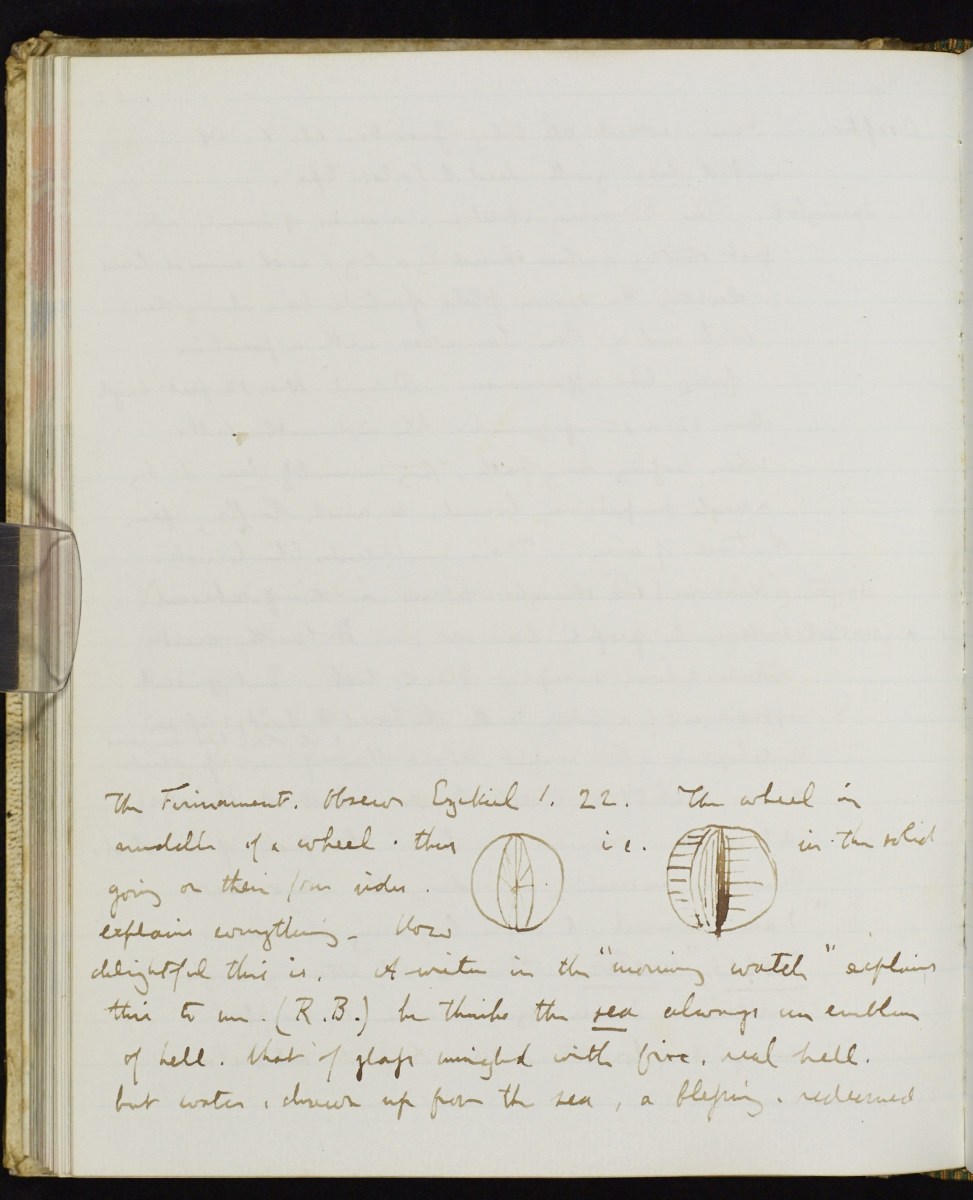 The Firmament. Observe Ezekiel 1. 22. The wheel in
middle of a wheel. thus i e. in the solid
going on their four sides.
explains everything - How
delightful this is. A writer in the "morning watch" explains
this to me. (R.B.) he thinks the sea always an emblem
of hell. that of glass mingled with fire. real hell.
but water, drawn up from the sea, a blessing. redeemed